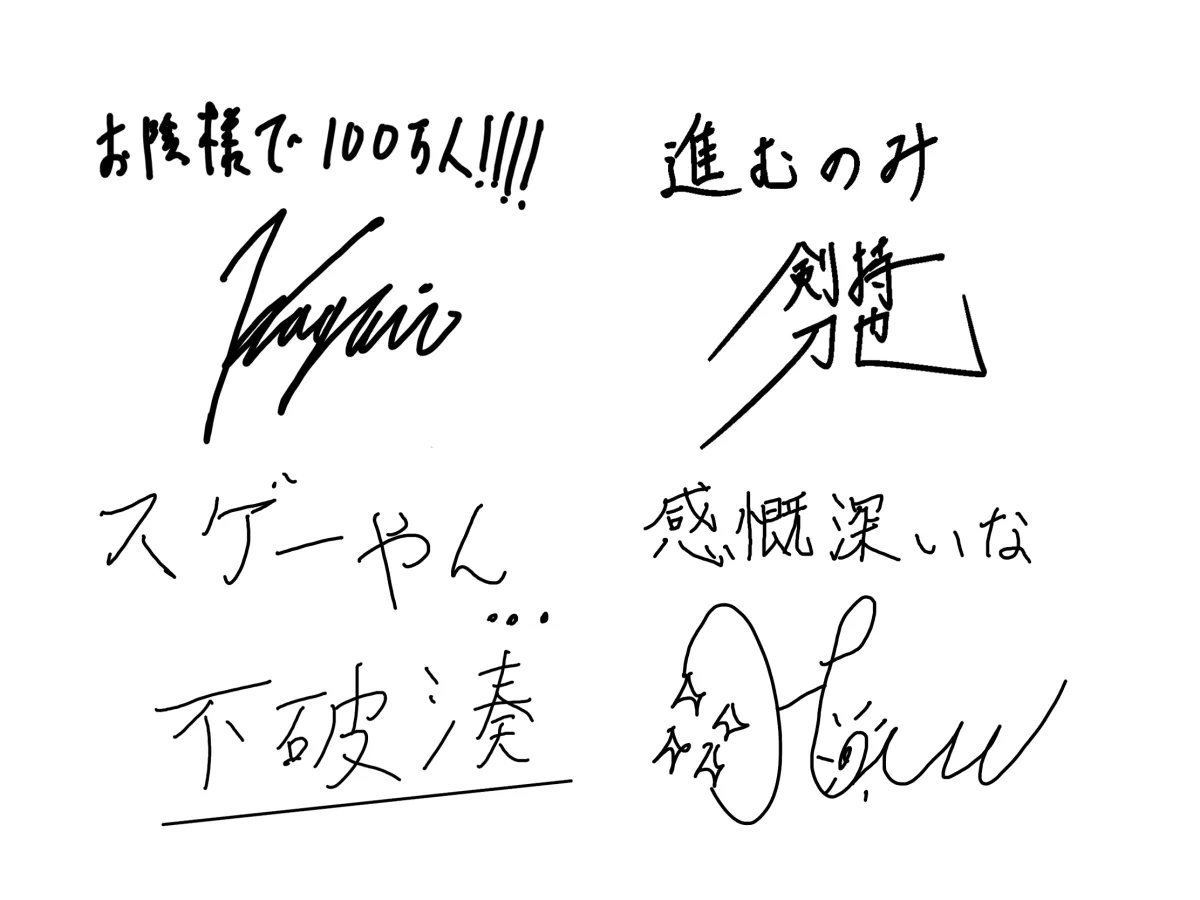 お陰様で100万人!!!!
進むのみ
剣持
刀也
スゲーやん...
不破湊
感慨深いな